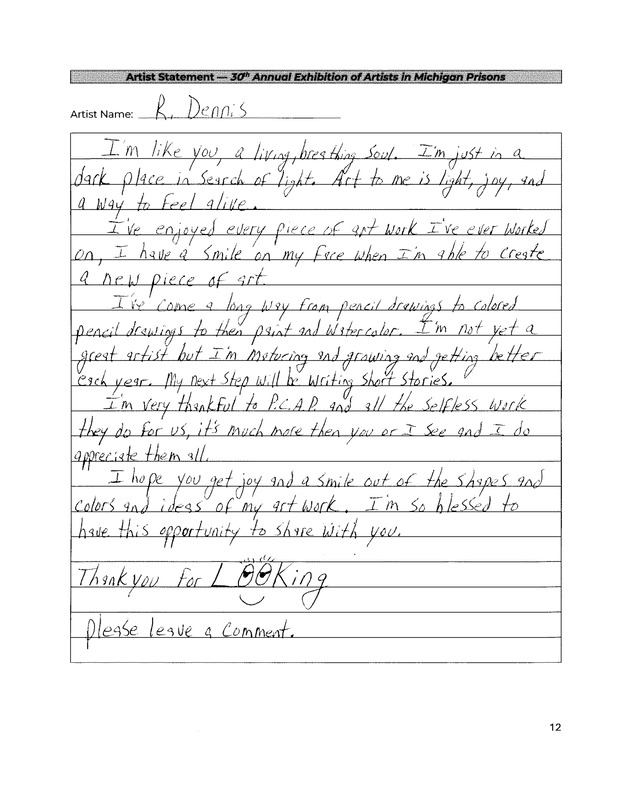 Artist Statement — 30th Annual Exhibition of Artists in Michigan Prisons
Artist Name: R. Dennis
I'm like you, a living, breathing Soul. I'm just in a
dark place in search of light. Art to me is light, joy, and
a way to feel alive.
I've enjoyed every piece of art work I've ever worked
on, I have a smile on my face when I'm able to create
a new piece of art.
I've come a long way from pencil drawings to colored
pencil drawings to then paint and watercolor. I'm not yet a
great artist but I'm maturing and growing and getting better
each year. My next step will be writing short stories.
I'm very thankful to P.C.A.P. and all the selfless work
they do for us, it's much more then you or I see and I do
appreciate them all.
I hope you get joy and a smile out of the shapes and
colors and ideas of my art work. I'm so blessed to
have this opportunity to share with you.
Thank you for LOOKing
please leave a comment.
12